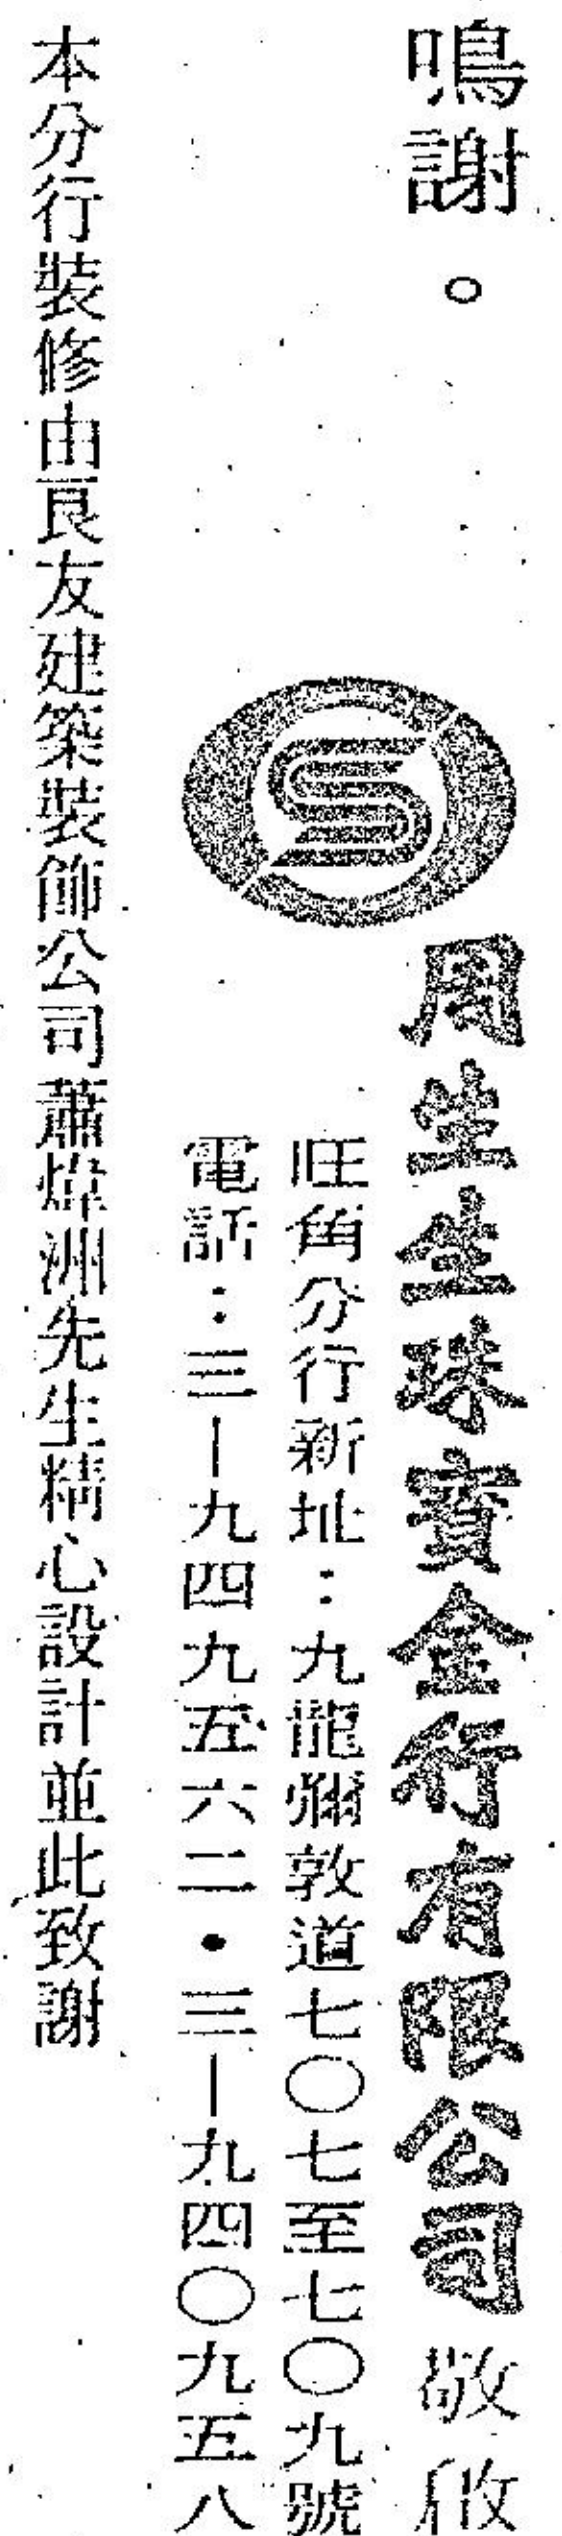 鳴謝。
周生生珠寶金行有限公司 敬啟
旺角分行新址：九龍彌敦道七〇七至七〇九號
電話：三—九四九五六二•三—九四〇九五八
本分行裝修由良友建築裝飾公司蕭煒洲先生精心設計並此致謝